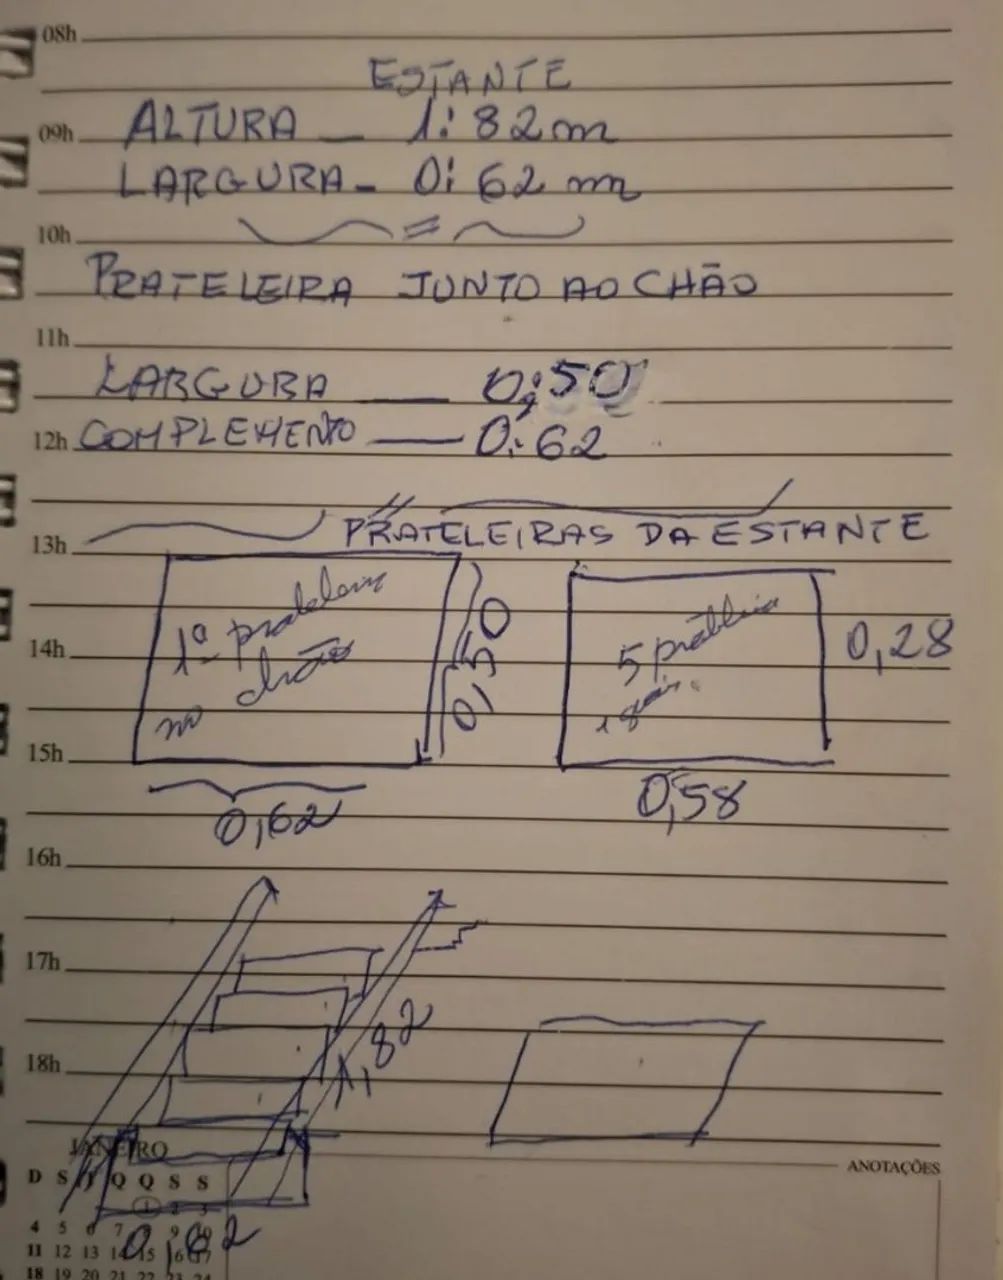 08h
ESTANTE
09h ALTURA - 1:82m
LARGURA - 0:62 m
10h
PRATELEIRA JUNTO AO CHÃO
11h
LARGURA — 0;50
12h COMPLEMENTO — 0:62
PRATELEIRAS DA ESTANTE
13h
1ª prateleira
no chão
0,50
0,62
5
0,28
0,58
14h
15h
16h
17h
1,82
18h
0,62
JANEIRO
D S T Q Q S S
1 2 3
4 5 6 7 8 9 10
11 12 13 14 15 16 17
18 19 20 21 22 23 24
ANOTAÇÕES